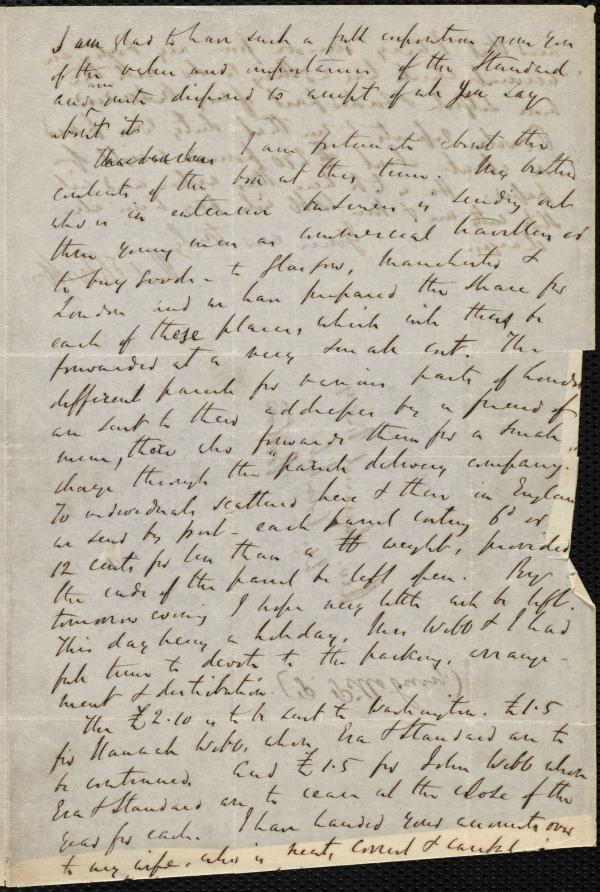 I am glad to have such a full exposition from you
of the value and importance of the Standard.
and am quite disposed to accept of all you say
about it.
I am fortunate about the
contents of the box at this time. My brother
who is in extensive business is sending out
three young men as commercial travellers or
to buy goods - to Glasgow, Manchester &
London and we have prepared the share for
each of these places, which will thus be
forwarded at a very small cost. The
different parcels for various parts of London
are sent to their addresses by a friend of
mine, there who forwards them for a small
charge through the "parcels delivery company."
To individuals scattered here & there in England
we send by post - each parcel costing 6d or
12 cents for less than a lb weight, provided
the ends of the parcel be left open. By
tomorrow evening I hope very little will be left.
This day being a holiday, Mrs Webb & I had
full time to devote to the packing, arrange-
ment & distribution.
The £2.10 is to be sent to Washington. £1.5
for Hannah Webb, whose Era & Standard are to
be continued and £1.5 for John Webb whose
Era & Standard are to cease at the close of the
year for each. I have handed your accounts over
to my wife, who is neat, correct & careful